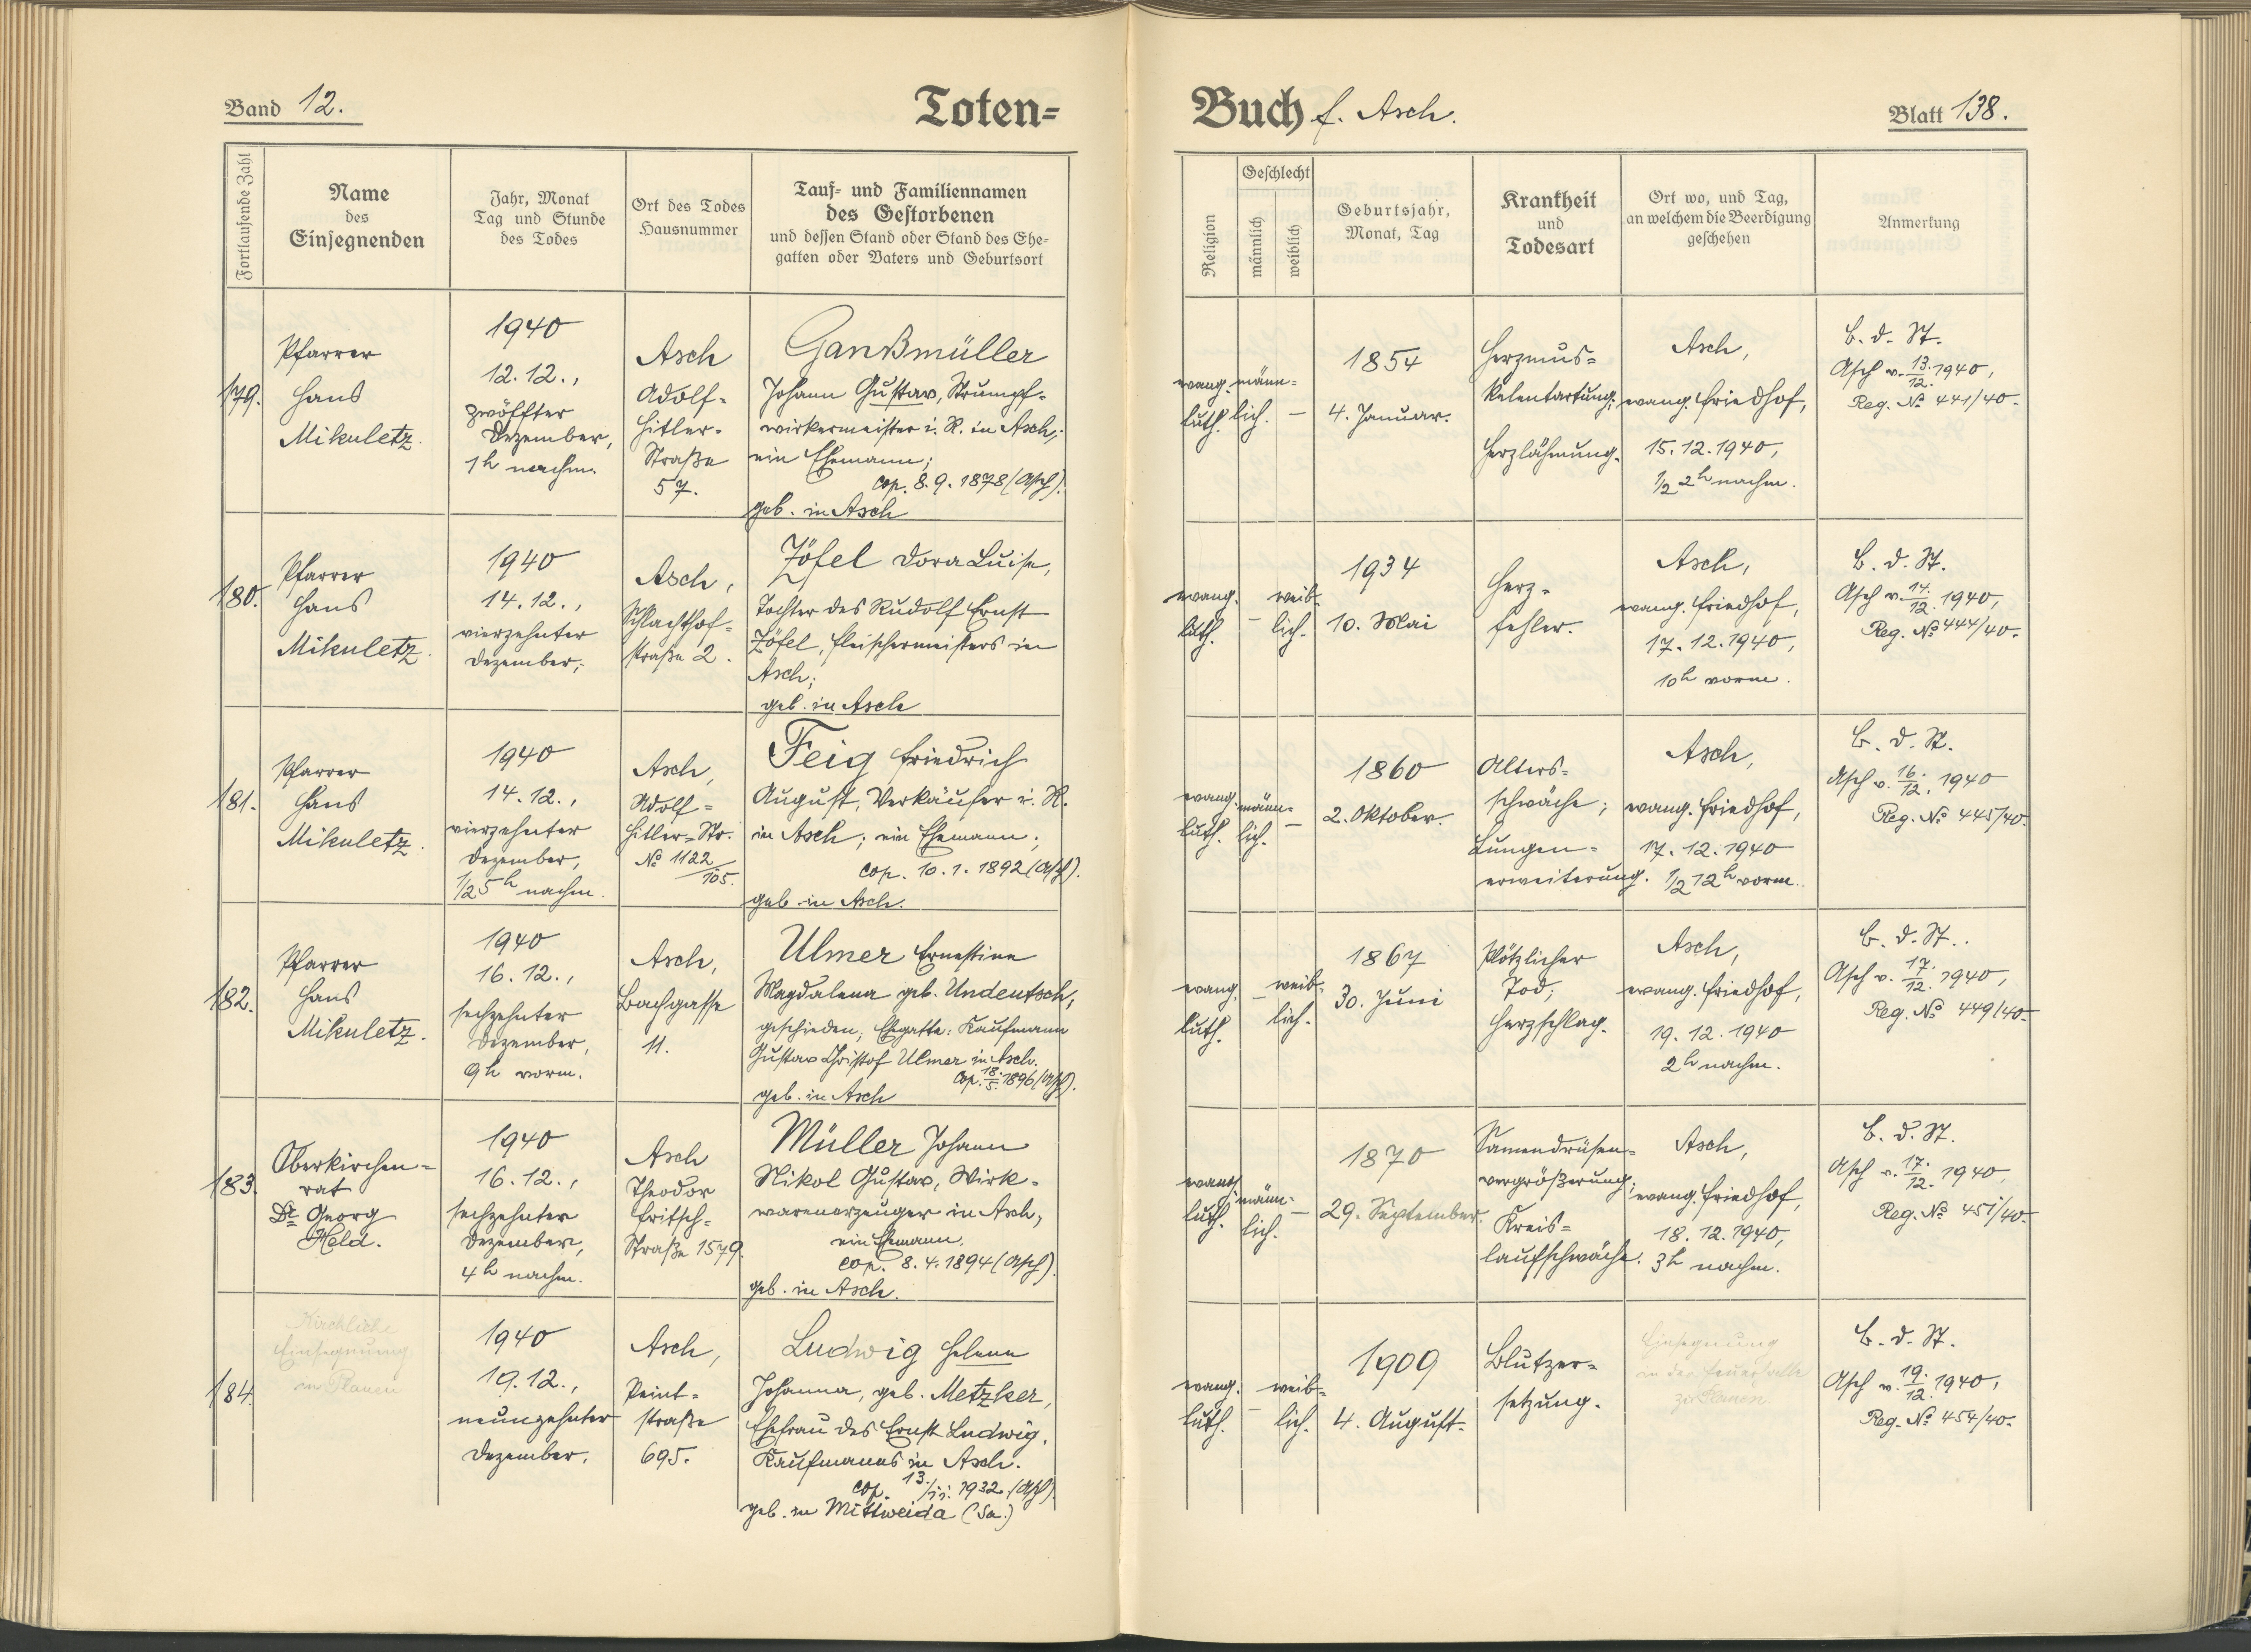 Band 12.
Toten-
Buch f. Asch.
Blatt 138.
Fortlaufende Zahl
Name
des
Einsegnenden
Jahr, Monat
Tag und Stunde
des Todes
Ort des Todes
Hausnummer
Tauf- und Familiennamen
des Gestorbenen
und dessen Stand oder Stand des Ehe-
gatten oder Vaters und Geburtsort
Religion
Geschlecht
männlich
weiblich
Geburtsjahr,
Monat, Tag
Krankheit
und
Todesart
Ort wo, und Tag,
an welchem die Beerdigung
geschehen
Anmerkung
179.
Pfarrer
Hans
Mikuletz.
1940
12.12.,
zwölfter
Dezember,
1h nachm.
Asch
Adolf-
Hitler-
Straße
57.
Ganßmüller
Johann Gustav, Strumpf-
wirkermeister i. R. in Asch,
ein Ehemann;
cop. 8.9.1878 (Asch).
geb. in Asch
evang.
luth.
männ-
lich.
–
1854
4. Januar.
Herzmus-
kelentartung;
Herzlähmung.
Asch,
evang. Friedhof,
15.12.1940,
1/2 2h nachm.
B. d. St.
Asch v. 13./12. 1940,
Reg. No 441/40.
180.
Pfarrer
Hans
Mikuletz.
1940
14.12.,
vierzehnter
Dezember;
Asch,
Schlachthof-
straße 2.
Zöfel Dora Luise,
Tochter des Rudolf Ernst
Zöfel, Fleischermeisters in
Asch;
geb. in Asch
evang.
luth.
–
weib-
lich.
1934
10. Mai
Herz-
fehler.
Asch,
evang. Friedhof,
17.12.1940,
10h vorm.
B. d. St.
Asch v. 14./12. 1940,
Reg. No 444/40.
181.
Pfarrer
Hans
Mikuletz.
1940
14.12.,
vierzehnter
Dezember,
1/2 5h nachm.
Asch,
Adolf-
Hitler-Str.
No 1122/105.
Feig Friedrich
August, Verkäufer i. R.
in Asch; ein Ehemann;
cop. 10.1.1892 (Asch).
geb. in Asch.
evang.
luth.
männ-
lich.
–
1860
2. Oktober.
Alters-
schwäche;
Lungen-
erweiterung.
Asch,
evang. Friedhof,
17.12.1940
1/2 12h vorm.
B. d. St.
Asch v. 16./12. 1940
Reg. No 445/40.
182.
Pfarrer
Hans
Mikuletz.
1940
16.12.,
sechzehnter
Dezember,
9h vorm.
Asch,
Bachgasse
11.
Ulmer Ernestine
Magdalena geb. Undeutsch,
geschieden; Ehegatte: Kaufmann
Gustav Christof Ulmer in Asch.
cop. 18./5. 1896 (Asch).
geb. in Asch
evang.
luth.
–
weib-
lich.
1867
30. Juni
Plötzlicher
Tod;
Herzschlag.
Asch,
evang. Friedhof,
19.12.1940
2h nachm.
B. d. St.
Asch v. 17./12. 1940,
Reg. No 449/40.
183.
Oberkirchen-
rat
Dr Georg
Held.
1940
16.12.,
sechzehnter
Dezember,
4h nachm.
Asch
Theodor
Fritsch-
Straße 1579.
Müller Johann
Nikol Gustav, Wirk-
warenerzeuger in Asch,
ein Ehemann.
cop. 8.4.1894 (Asch).
geb. in Asch.
evang.
luth.
männ-
lich.
–
1870
29. September.
Samendrüsen-
vergrößerung;
Kreis-
laufschwäche.
Asch,
evang. Friedhof,
18.12.1940,
3h nachm.
B. d. St.
Asch v. 17./12. 1940,
Reg. No 451/40.
184.
Kirchliche
Einsegnung
in Plauen
1940
19.12.,
neunzehnter
Dezember.
Asch,
Peint-
straße
695.
Ludwig Helene
Johanna, geb. Metzker,
Ehefrau des Ernst Ludwig,
Kaufmanns in Asch.
cop. 13./11. 1932 (Asch).
geb. in Mittweida (Sa.)
evang.
luth.
–
weib-
lich.
1909
4. August.
Blutzer-
setzung.
Einsegnung
in der Feuerhalle
zu Plauen.
B. d. St.
Asch v. 19./12. 1940,
Reg. No 454/40.